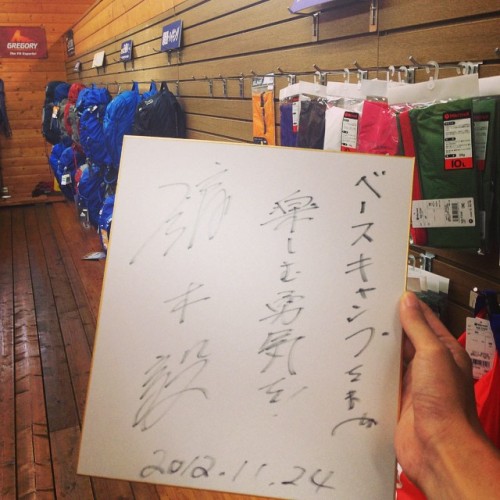 GREGORY
ベースキャンプさま
楽しむ勇気を!
鏑木毅
2012.11.24
10L